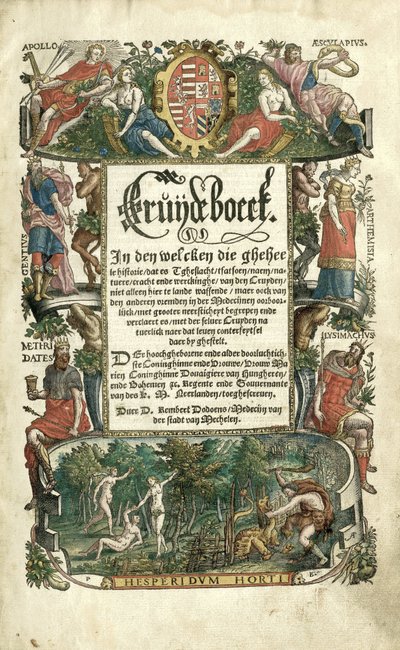 APOLLO
ÆSCULAPIUS.
GENTIUS
ARTHEMISIA
Cruÿdeboeck.
In den welcken die ghehee
le historie/dat es Tgheslacht/tfatsoen/naem/na-
tuere/cracht ende werckinghe/van den Cruyden/
niet alleen hier te lande wassende/maer oock van
den anderen vremden in der Medecijnen oorboor-
lijck/met grooter neersticheyt begrepen ende
verclaert es/met der selver Cruyden na
tuerlick naer dat leven conterfeytsel
daer by ghestelt.
MITHRI
DATES
LYSIMACHUS
Der hoochgheborene ende alder doorluchtich-
ste Coninghinne ende Vrouwe/Vrouw Ma
rien Coninghinne Douaigiere van Hungheren/
ende Bohemen &c. Regente ende Gouvernante
van des K. M. Neerlanden/toegheschreven.
Duer D. Rembert Dodoens/Medecijn van
der stadt van Mechelen.
P
B
HESPERIDVM HORTI